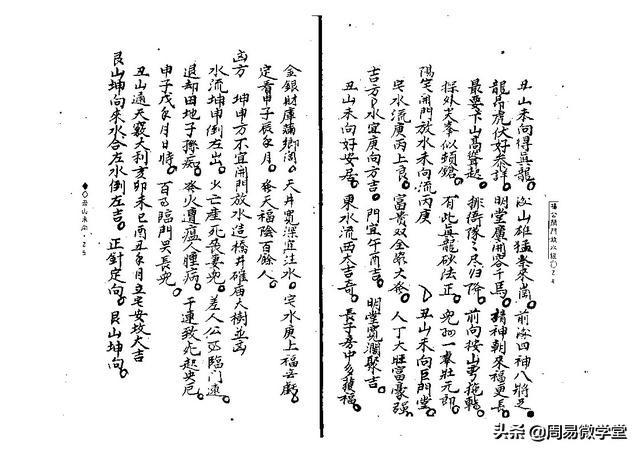 丑山未向得真龍。汝山雄猛聚來崗。前後四神八將足。
龍昂虎伏好恭詳。明堂廣開容千馬。精神朝來福更長。
最要下山高聳起。排衙隊隊尽归降。前向桉山
採外尖峯似頓鎗。有此真龍砂法正。一舉壯元郎。
陽宅開門放水未向流丙庚
丑山未向巨門堂。
宅水流庚丙上良。富貴双全家大發。人丁大旺富豪強。
吉方 水宜庚向方吉。門宜午酉吉。明堂寬濶聚吉。
丑山未向好安居。東水流西大吉奇。長子房中多穫福。
金銀財庫滿鄉閭。天井寬深宜注水。宅水庚上福
定看申子辰年月。發天福陰百餘人。
凶方 坤申方不宜開門放水造橋井碓廟大樹並凶
水流坤申倒左出。火亡產死喪妻兇。差人公臨門速
退却田地子孫痴。發火遭瘟人腫病。干連致死起央厄
申子戊年月日時。百臨門哭長兇。
丑山通天竅大利亥卯未巳酉丑年月立宅安坟大吉
艮山坤向來水合左水倒左吉。正針定向。艮山坤向。
楊公開門放水經
丑山未向
头条 @周易微学堂